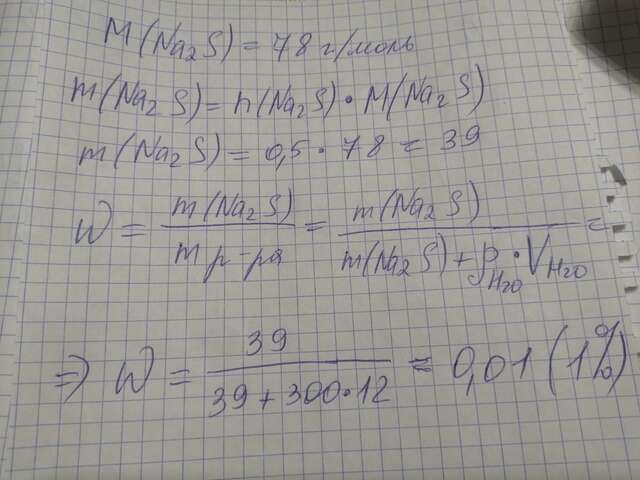 M(Na₂S) = 78 г/моль
m(Na₂S) = n(Na₂S) · M(Na₂S)
m(Na₂S) = 0,5 · 78 = 39
W = m(Na₂S) / m р-ра = m(Na₂S) / m(Na₂S) + ρ H₂O · V H₂O =
⇒ W = 39 / 39 + 300 · 12 = 0,01 (1%)